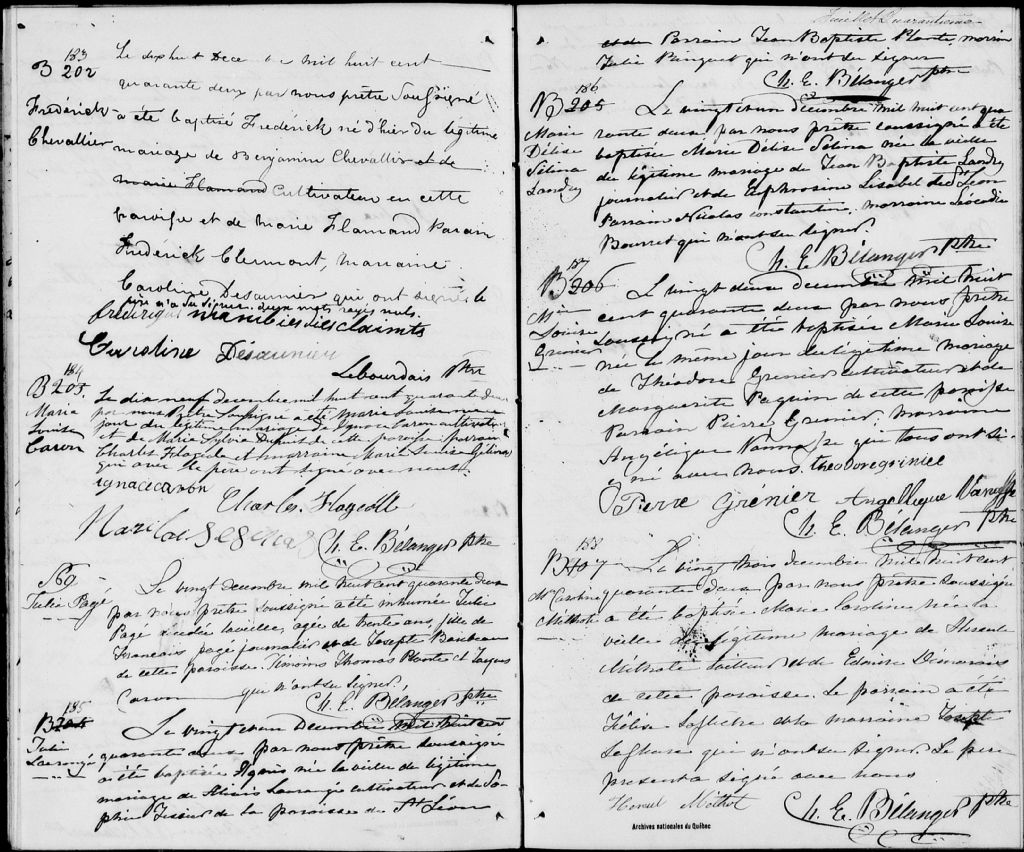 183
B 202
Frédérick
Chevallier
Le dixhuit Dece mil huit cent
quarante deux par nous prêtre Soussigné
a été baptisé Frédérick né d'hier du légitime
mariage de Benjamin Chevallier et de
marie Flamand Cultivateur en cette
paroisse et de Marie Flamand Parain
Frédérick Clermont, Maraine
Caroline Desaunier qui ont signé le
père n'a su signer. deux mots rayés nuls.
frederique
Caroline Désaunier
Lebourdais Ptre
184
B 203.
Maria
Louise
Caron
Le dix neuf decembre mil huit cent quarante deux
par nous Prêtre soussigné a été Marie Louise née ce
jour du légitime mariage de Ignace Caron cultivateur
et de Marie Sylvia Dupuis de cette paroisse parrain
Charles Flageole et marraine Marie Louise Gélinas
qui avec le père ont signé avec nous
ignace caron
Charles. Flageoll
Ch. E. Bélanger ptre
S60
Julie Pagé
Le vingt decembre mil huit cent quarante deux
par nous prêtre soussigné a été inhumée Julie
Pagé decédée la veille, agée de trente ans, fille de
Francais pagé journalier et de Josephte Baribeau
de cette paroisse. Temoins Thomas Plante et Jacques
Caron qui n'ont su signer,
Ch. E. Bélanger Ptre
185
B 204
Julie
Le vingt et un Decembre mil huit cent
quarante deux par nous prêtre soussigné
a été baptisée Agnis née la veille du légitime
mariage de Alexis cultivateur et de So-
phie Tessier de la paroisse de St Léon
Feuillet Quarantième
et du Parrain Jean Baptiste Plante, marraine
Julie Pinguet qui n'ont su signer
Ch. E. Bélanger ptre
186
B 205
Marie
Délise
Sélina
Landry
Le vingt et un décembre mil huit cent qua
rante deux par nous prêtre soussigné a été
baptisée Marie Délise Sélina née la veille
du légitime mariage de Jean Baptiste Landry
journalier et de Euphrosine Lisabel de St Léon
Parrain Nicolas constantin, marraine Léocadie
Bourret qui n'ont su signer.
Ch. E. Bélanger Ptre
187
B 206
Mie
Louise
Grenier
Le vingt deux decembre mil huit
cent quarante deux par nous prêtre
soussigné a été baptisée Marie Louise
née le même jour du légitime mariage
de Théodore Grenier cultivateur et de
Marguerite Paquin de cette paroisse
Parrain Pierre Grenier, marraine
Angélique Vanasse que tous ont si-
gné avec nous. theodore grinier
Pierre Grénier Angellique Vanasse
Ch. E. Bélanger Ptre
188
B 207
Me Caroline
Méthote
Le vingt trois decembre mil huit cent
quarante deux par nous prêtre soussigné
a été baptisée Marie Caroline née la
veille du légitime mariage de
Méthote tailleur et de Edwise Démarais
de cette paroisse. Le parrain a été
Laflèche et la marraine Josephte
qui n'ont su signer. Le père
present a signé avec nous
Méthot
Ch. E. Bélanger ptre
Archives nationales du Québec